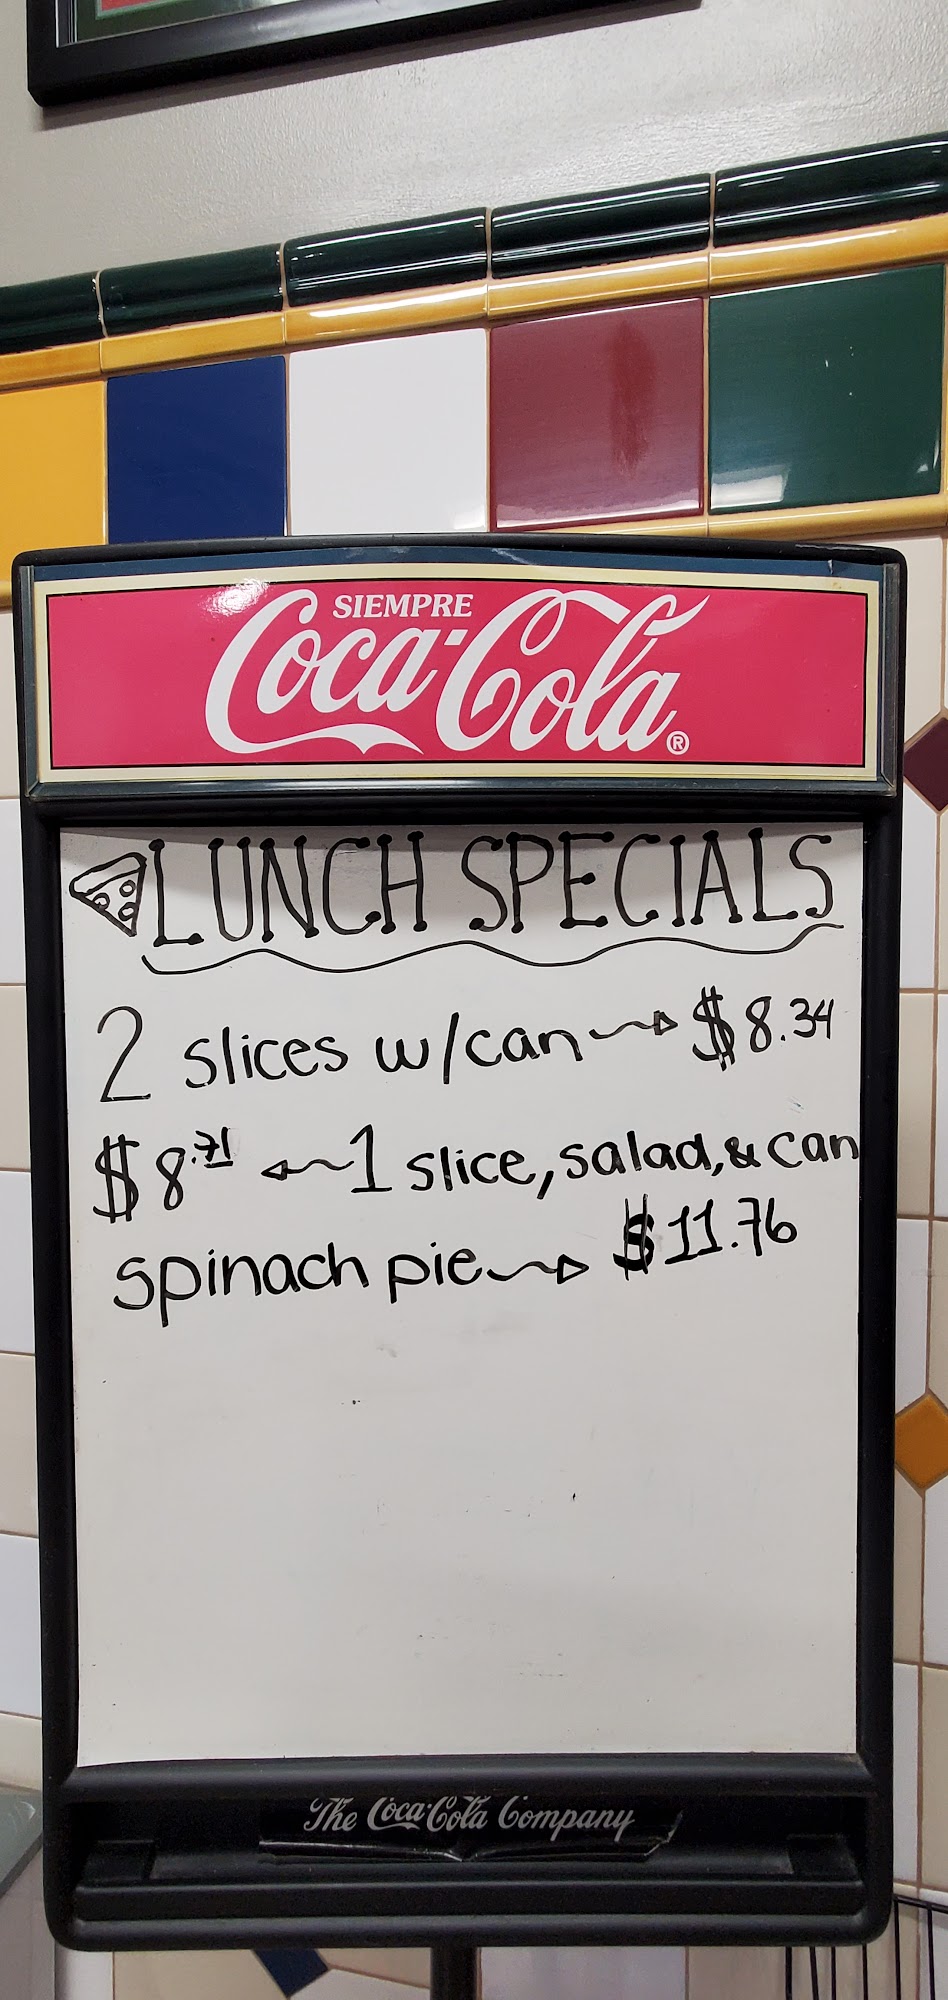 SIEMPRE
Coca-Cola®
LUNCH SPECIALS
2 slices w/can $8.34
$8.71 1 slice, salad, & can
spinach pie $11.76
The Coca-Cola Company